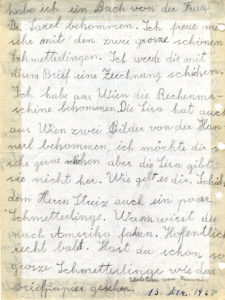 habe ich ein Buch von der Frau
Dr. Laxel bekommen. Ich freue mich
sehr mit dem zwei grosze schönen
Schmetterlingen. Ich werde dir mit
disem Brief eine Zeichnung schicken.
Ich habe aus Wien die Rechenma-
schine bekommen. Die Lisa hat auch
aus Wien zwei Bilder von der Han
nerl bekommen, ich möchte die
sehr gerne nehen aber die Lisa gibt
sie nicht her. Wie geht es dir, Schick
dem Herrn Streix auch ein paar
Schmetterlinge. Wann wirst du
nach Amerika faren. Hoffentlich
recht balt. Hast du schon so
grosze Schmetterlinge wie das
briefpapier gesehen.
13. Dez. 196